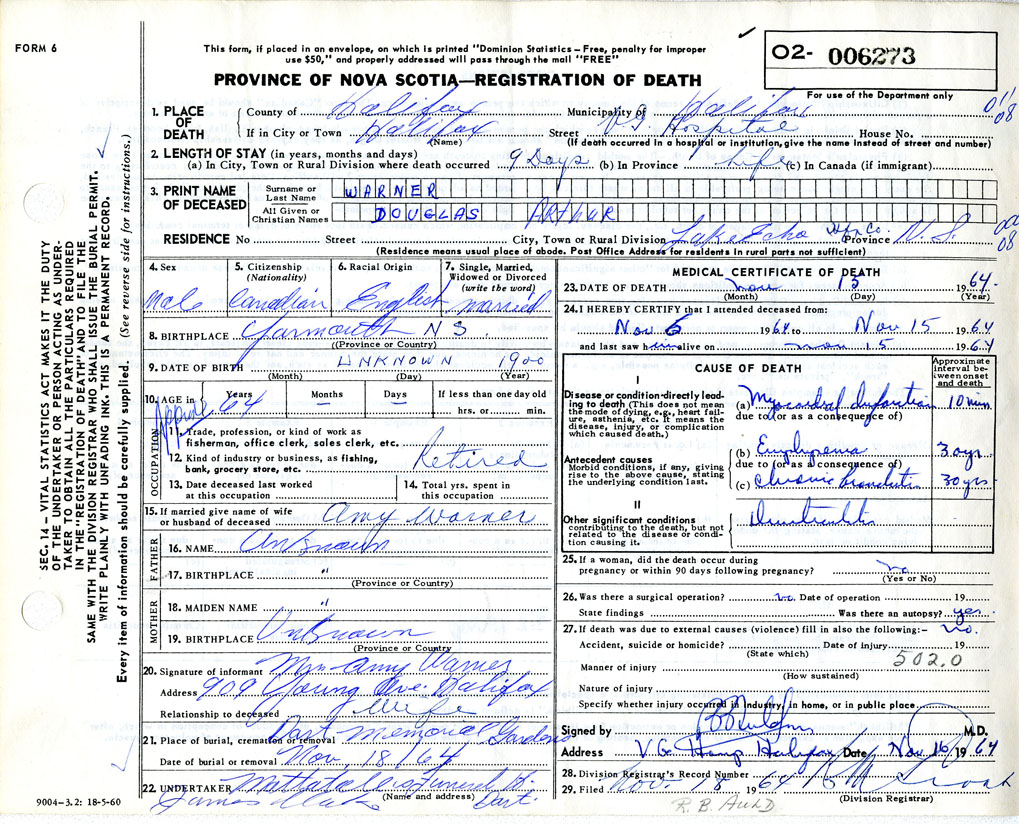 FORM 6
This form, if placed in an envelope, on which is printed "Dominion Statistics – Free, penalty for improper
use $50," and properly addressed will pass through the mail "FREE"
PROVINCE OF NOVA SCOTIA—REGISTRATION OF DEATH
02- 006273
For use of the Department only
1. PLACE OF DEATH
County of Halifax Municipality of Halifax 011
If in City or Town Halifax Street V.G. Hospital House No. 08
(Name) (If death occurred in a hospital or institution, give the name instead of street and number)
2. LENGTH OF STAY (in years, months and days)
(a) In City, Town or Rural Division where death occurred 9 Days (b) In Province Life (c) In Canada (if immigrant)
3. PRINT NAME OF DECEASED
Surname or Last Name WARNER
All Given or Christian Names DOUGLAS ARTHUR
RESIDENCE No Street City, Town or Rural Division Lake Echo Hfx Co. Province N.S. 08
(Residence means usual place of abode. Post Office Address for residents in rural parts not sufficient)
4. Sex Male
5. Citizenship (Nationality) Canadian
6. Racial Origin English
7. Single, Married, Widowed or Divorced (write the word) Married
8. BIRTHPLACE Yarmouth N S
(Province or Country)
9. DATE OF BIRTH UNKNOWN 1900
(Month) (Day) (Year)
10. AGE in Years Months Days If less than one day old
Approx 64 hrs. or min.
OCCUPATION
11. Trade, profession, or kind of work as
fisherman, office clerk, sales clerk, etc.
12. Kind of industry or business, as fishing,
bank, grocery store, etc. Retired
13. Date deceased last worked
at this occupation
14. Total yrs. spent in
this occupation
15. If married give name of wife
or husband of deceased Amy Warner
FATHER
16. NAME Unknown
17. BIRTHPLACE "
(Province or Country)
MOTHER
18. MAIDEN NAME "
19. BIRTHPLACE Unknown
(Province or Country)
20. Signature of informant Mrs Amy Warner
Address 909 Young Ave. Halifax
Relationship to deceased Wife
21. Place of burial, cremation or removal Dart Memorial Gardens
Date of burial or removal Nov, 18/64
22. UNDERTAKER Funeral H.
(Name and address) Dart.
James
9004-3.2: 18-5-60
MEDICAL CERTIFICATE OF DEATH
23. DATE OF DEATH Nov 15 1964
(Month) (Day) (Year)
24. I HEREBY CERTIFY that I attended deceased from:
Nov 6 1964 to Nov 15 1964
and last saw him alive on Nov 15 1964
CAUSE OF DEATH
Approximate interval between onset and death
I
Disease or condition directly leading to death (This does not mean
the mode of dying, e.g., heart failure, asthenia, etc. It means the
disease, injury, or complication which caused death.)
(a) Myocardial 10 min
due to (or as a consequence of)
Antecedent causes
Morbid conditions, if any, giving rise to the above cause, stating the underlying condition last.
(b) Emphysema 3 oyrs
due to (or as a consequence of)
(c) Chronic bronchitis 30 yrs
II
Other significant conditions
contributing to the death, but not related to the disease or condition causing it.
25. If a woman, did the death occur during
pregnancy or within 90 days following pregnancy? no
(Yes or No)
26. Was there a surgical operation? no Date of operation 19
State findings Was there an autopsy? yes
27. If death was due to external causes (violence) fill in also the following:- no.
Accident, suicide or homicide? Date of injury 19
(State which) 502.0
Manner of injury
(How sustained)
Nature of injury
Specify whether injury occurred in industry, in home, or in public place
Signed by M.D.
Address V.G. Hosp. Halifax Date Nov 16 1964
28. Division Registrar's Record Number
29. Filed Nov. 18 1964
(Division Registrar)
R. B. AULD
SEC. 14 – VITAL STATISTICS ACT MAKES IT THE DUTY
OF THE UNDERTAKER OR PERSON ACTING AS UNDER-
TAKER TO OBTAIN ALL THE PARTICULARS REQUIRED
IN THE "REGISTRATION OF DEATH" AND TO FILE THE
SAME WITH THE DIVISION REGISTRAR WHO SHALL ISSUE THE BURIAL PERMIT.
WRITE PLAINLY WITH UNFADING INK. THIS IS A PERMANENT RECORD.
Every item of information should be carefully supplied. (See reverse side for instructions.)